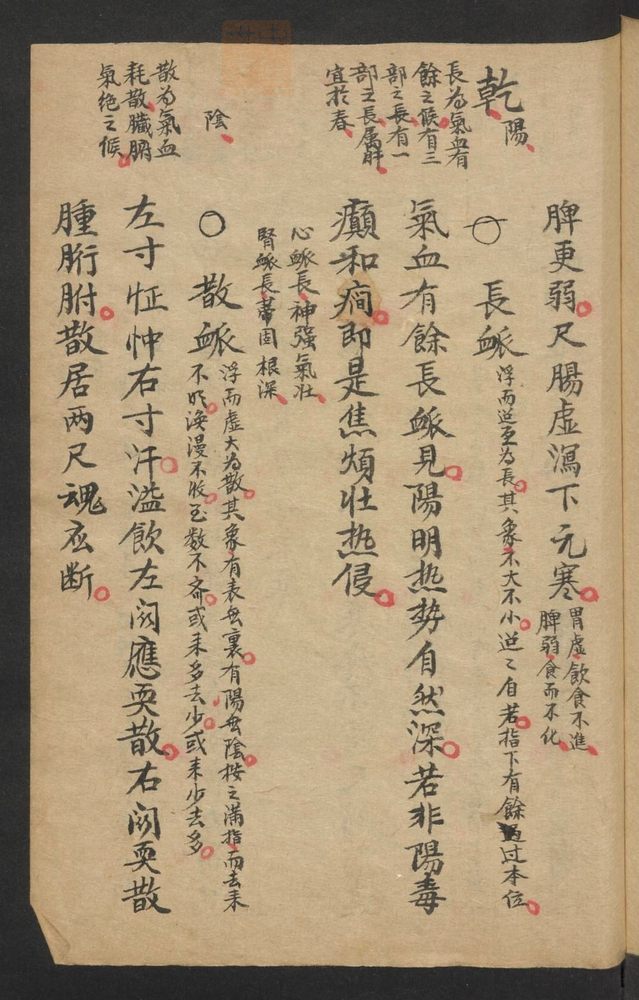 乾陽
長為氣血有
餘之候有三
部之長有一
部之長屬肝
宜於春
陰
散為氣血
耗散臟腑
氣绝之候
脾更弱尺腸虛瀉下元寒
胃虛飲食不進
脾弱食而不化
長脈
浮而迢亙為長其象不大不小迢々自若指下有餘過过本位
氣血有餘長脈見陽明热势自然深若非陽毒
癲和癇即是焦煩壮热侵
心脈長神强氣壮
腎脈長蒂固根深
○散脈
浮而虛大為散其象有表無裏有陽無陰按之满指而去来
不明涣漫不收至数不斉或来多去少或来少去多
左寸怔忡右寸汗溢飲左関應耎散右関耎散
腫胻胕散居两尺魂应断